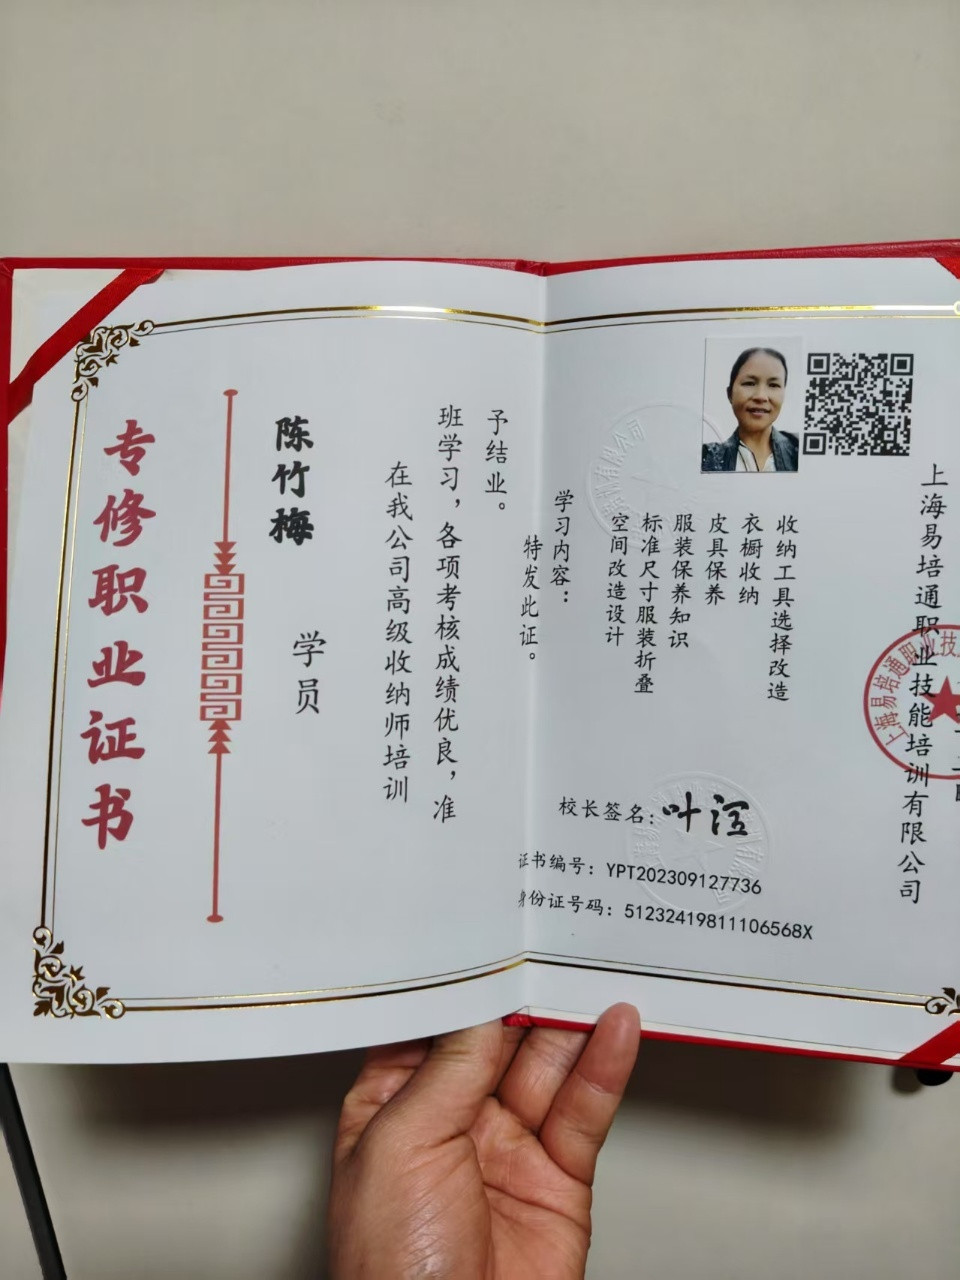 专修职业证书
陈竹梅
学员
在我公司高级收纳师培训
班学习，各项考核成绩优良，准
予结业。
特发此证。
学习内容：
空间改造设计
标准尺寸服装折叠
服装保养知识
皮具保养
衣橱收纳
收纳工具选择改造
校长签名：
证书编号：YPT202309127736
身份证号码：51232419811106568X
上海易培通职业技能培训有限公司
上海易培通职业技